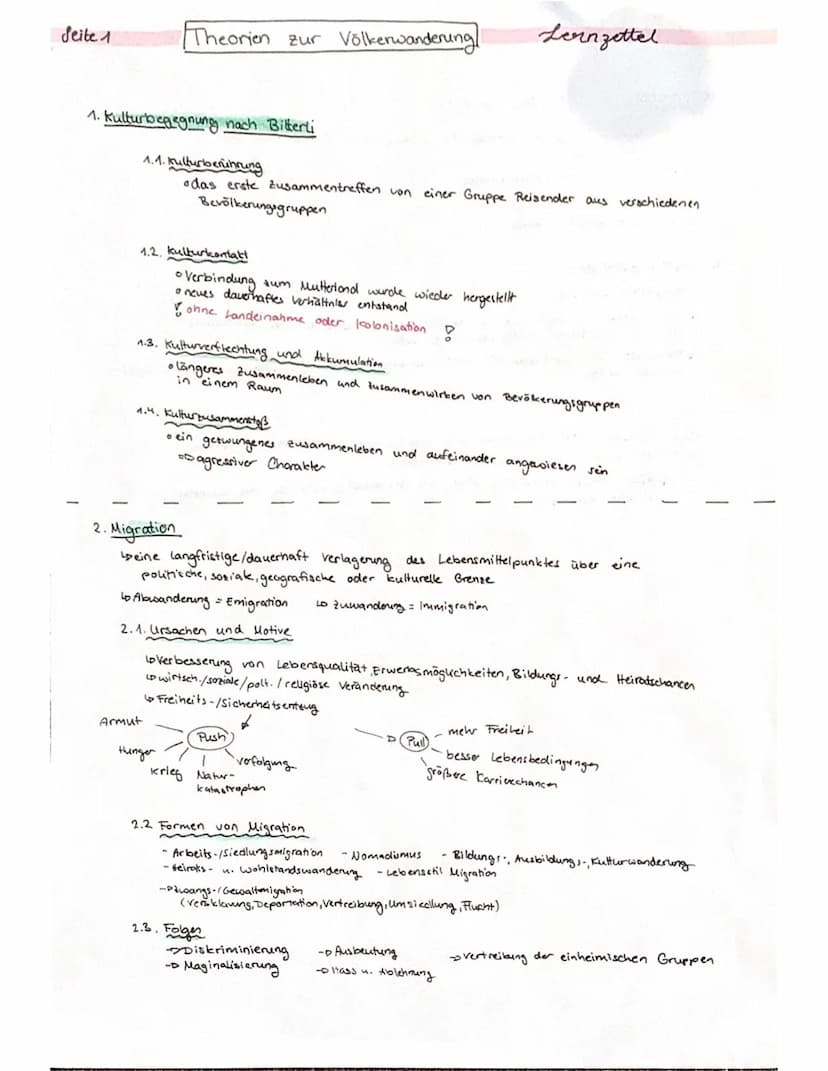 Seite 1
Theorien zur Völkerwanderung
Lernzettel
1. Kulturbegegnung nach Bitterli
1.1. Kulturberührung
das erste Zusammentreffen von einer Gruppe Reisender aus verschiedenen
Bevölkerungsgruppen
1.2. Kulturkontakt
Verbindung zum Mutterland wurde wieder hergestellt
neues dauerhaftes Verhältnis entstand
! ohne Landeinahme oder Kolonisation !
1.3. Kulturverflechtung und Akkumulation
längeres Zusammenleben und Zusammenwirken von Bevölkerungsgruppen
in einem Raum
1.4. Kulturzusammenstoß
ein gezwungenes Zusammenleben und aufeinander angewiesen sein
⇒ agressiver Charakter
2. Migration
↳ eine langfristige/dauerhaft Verlagerung des Lebensmittelpunktes über eine
politische, soziale, geografische oder kulturelle Grenze
↳ Abwanderung = Emigration ↳ Zuwanderung = Immigration
2.1. Ursachen und Motive
↳ Verbesserung von Lebensqualität, Erwerbsmöglichkeiten, Bildungs- und Heiratschancen
↳ wirtsch./soziale/polt./religiöse Veränderung
↳ Freiheits-/Sicherheitsentzug
Armut
Push
Hunger
Krieg
Natur-
katastrophen
Verfolgung
→ Pull
mehr Freiheit
besser Lebensbedingungen
größere Karrierechancen
2.2 Formen von Migration
- Arbeits-/Siedlungsmigration - Nomadismus - Bildungs-, Ausbildungs-, Kulturwanderung
- Heirats- u. Wohlstandswanderung - Lebensstil Migration
→ Zwangs-/Gewaltmigration
(Versklavung, Deportation, Vertreibung, Umsiedlung, Flucht)
2.3. Folgen
→ Diskriminierung → Ausbeutung → Vertreibung der einheimischen Gruppen
→ Maginalisierung → Hass u. Ablehnung